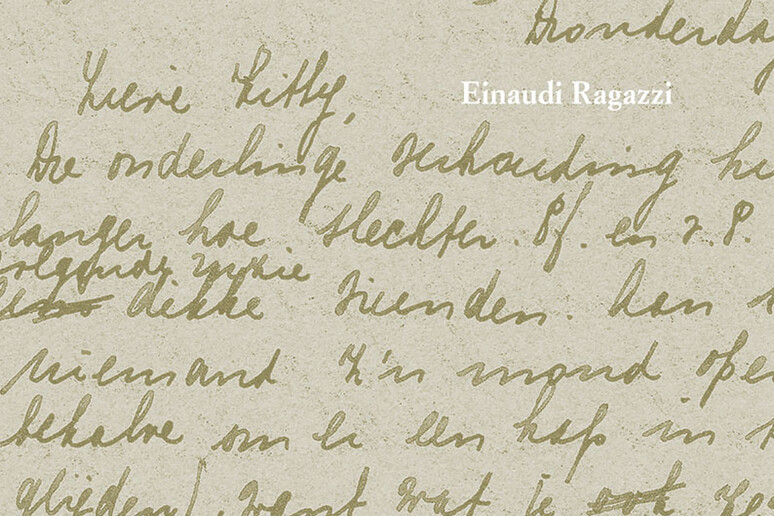 Donderda
Lieve Kitty,
Einaudi Ragazzi
De onderlinge verhouding hi
langer hoe slechter. Pf. en v.P.
volgende ruzie
dikke vrienden. Aan t
niemand z'n mond ope
behalve om er een hap in t
glijden), want wat je ook ze